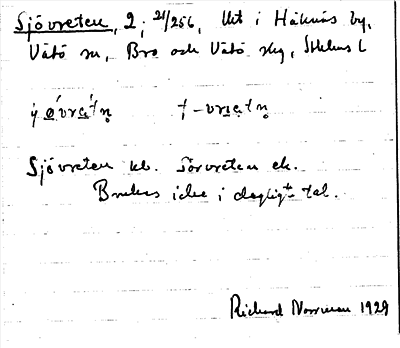 Sjövreten, 2; 21/256, Ukt i Håknäs by,
Vätö sn, Bro och Vätö skg, Sthlms l
Sjövreten kb. Sörvreten ek.
Brukas icke i dagligt tal.
Richard Norrman 1929